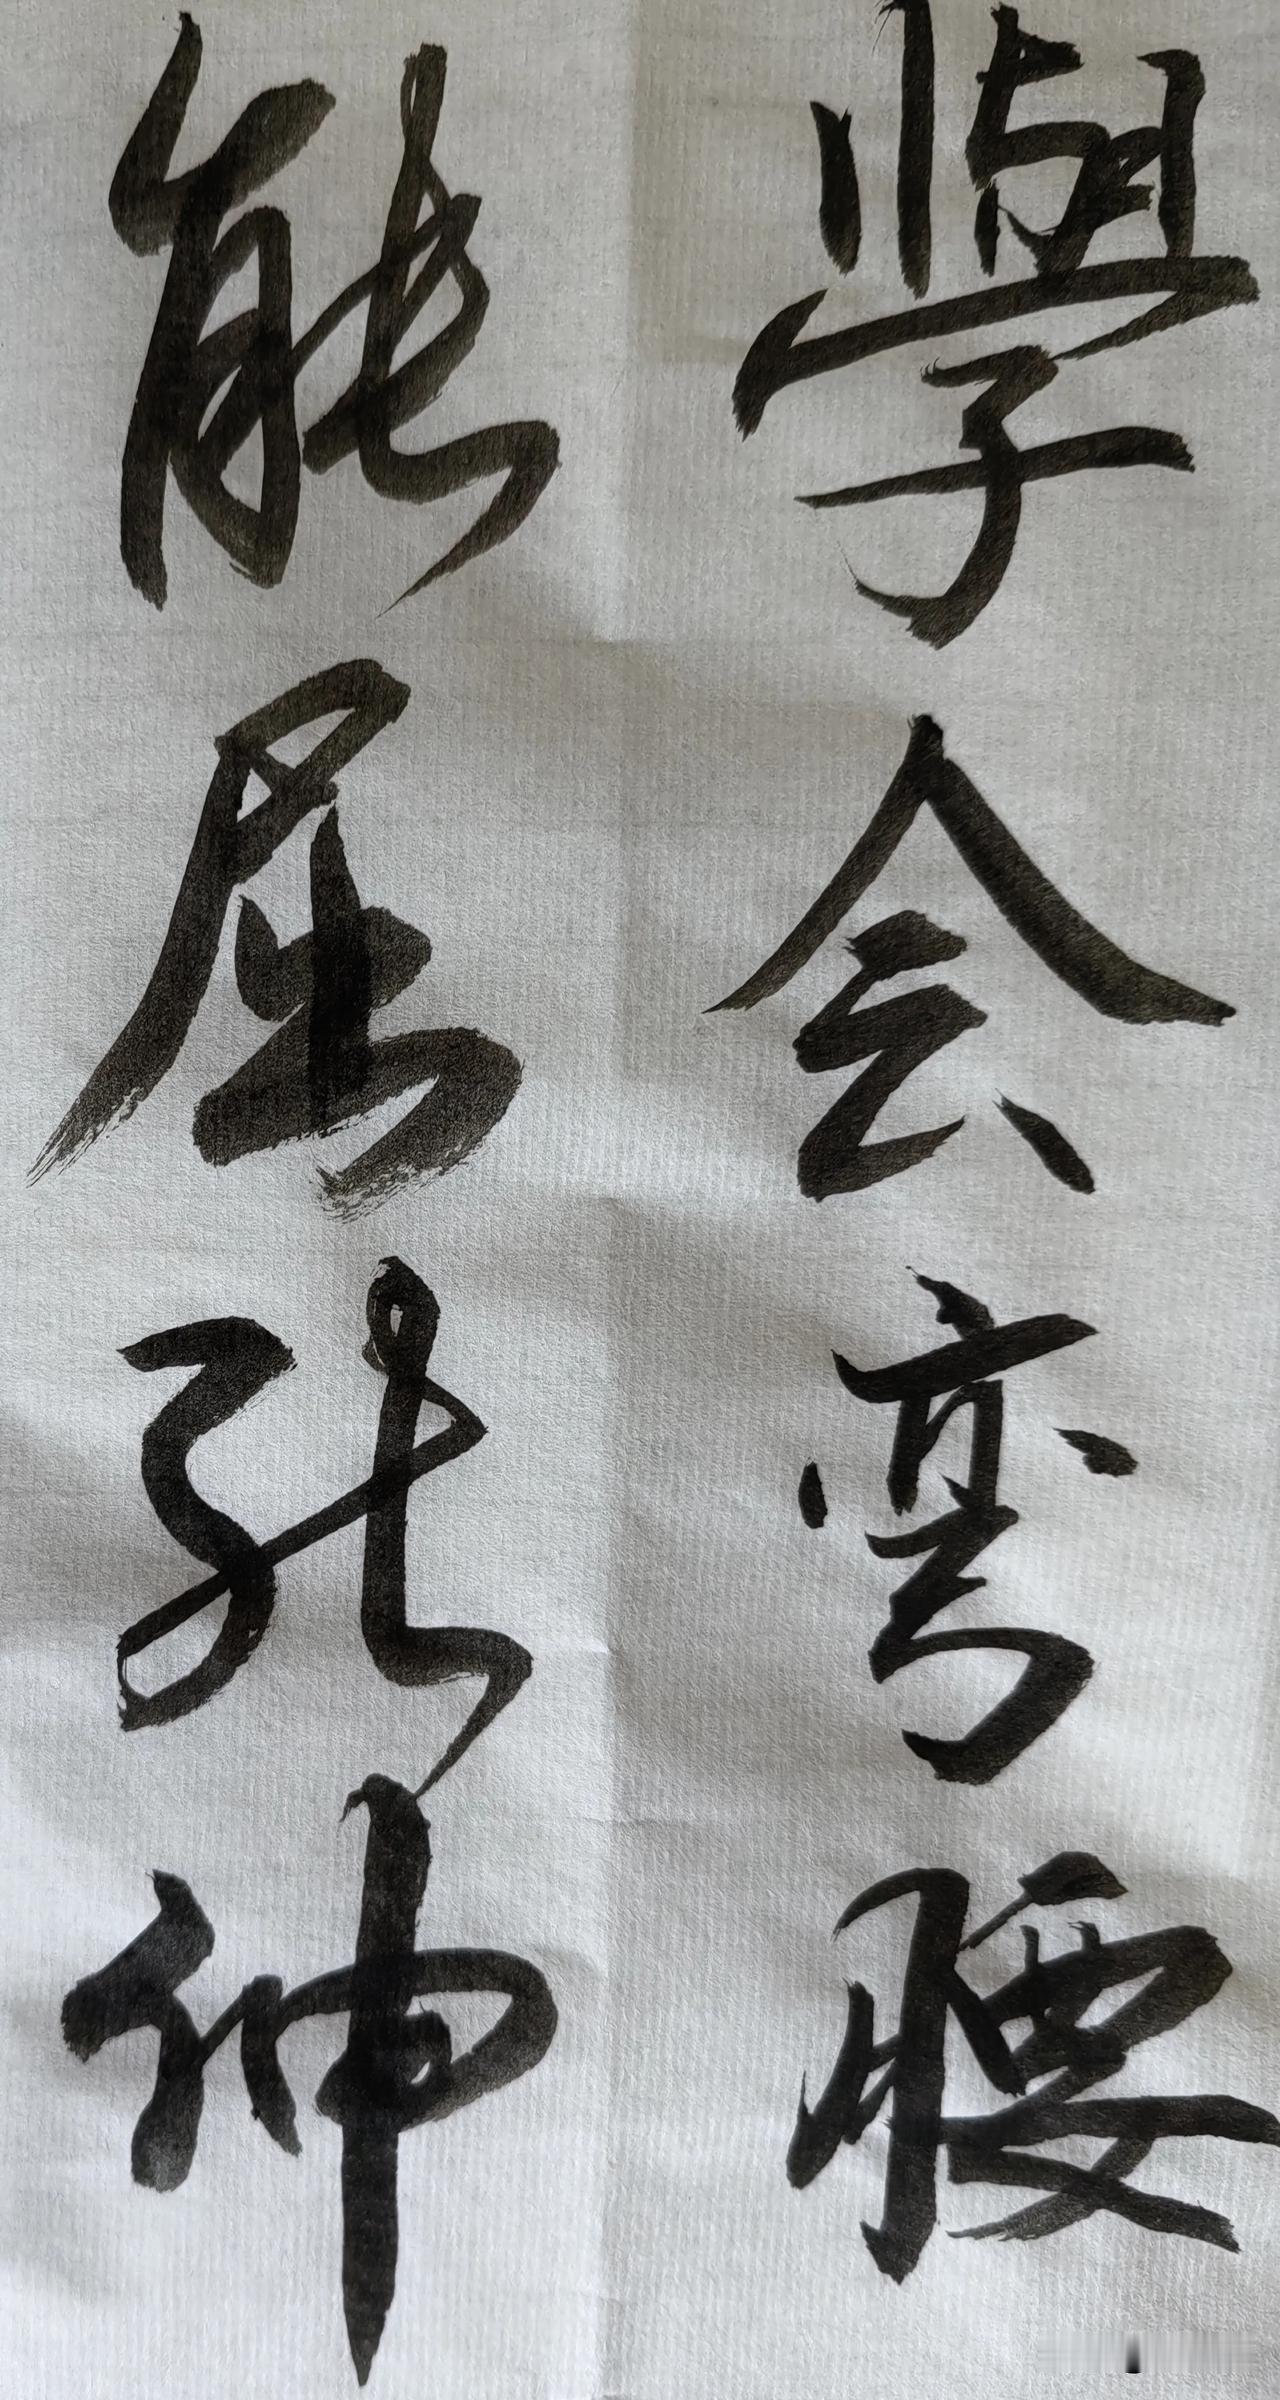 學会弯腰
能屈能伸